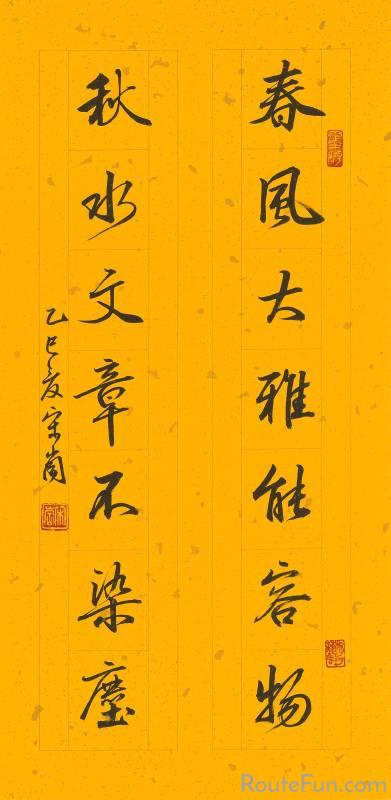 春風大雅能容物
秋水文章不染塵
乙巳夏宋崗
RouteFun.com